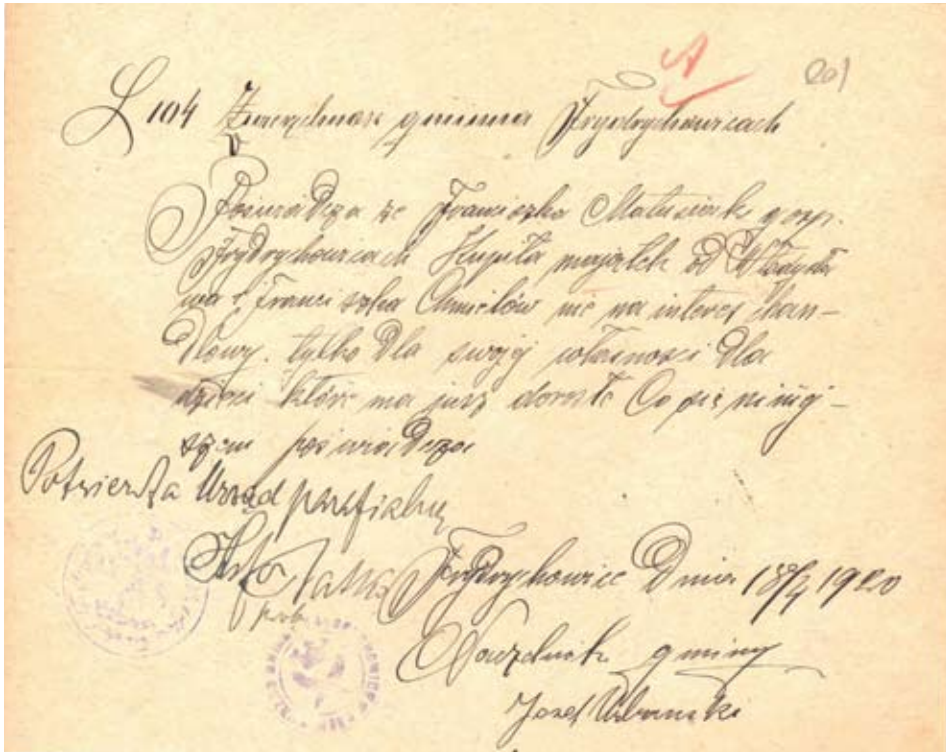 A 201
L 104 Zwierzchność gminna Frydrychowicach
Poświadcza że Franciszka Matusiak gosp.
Frydrychowicach Kupiła majątek od Władysła
wa i Franciszka Chmielów nie na interes Chan-
Dlowy. tylko Dla swojej własności Dla
dzieci które ma jusz dorosłe Co się niniej-
szem poświadcza
Potwierdza Urząd parafialny
Frydrychowice Dnia 18/4 1920
Naczelnik gminy
Józef Urbański